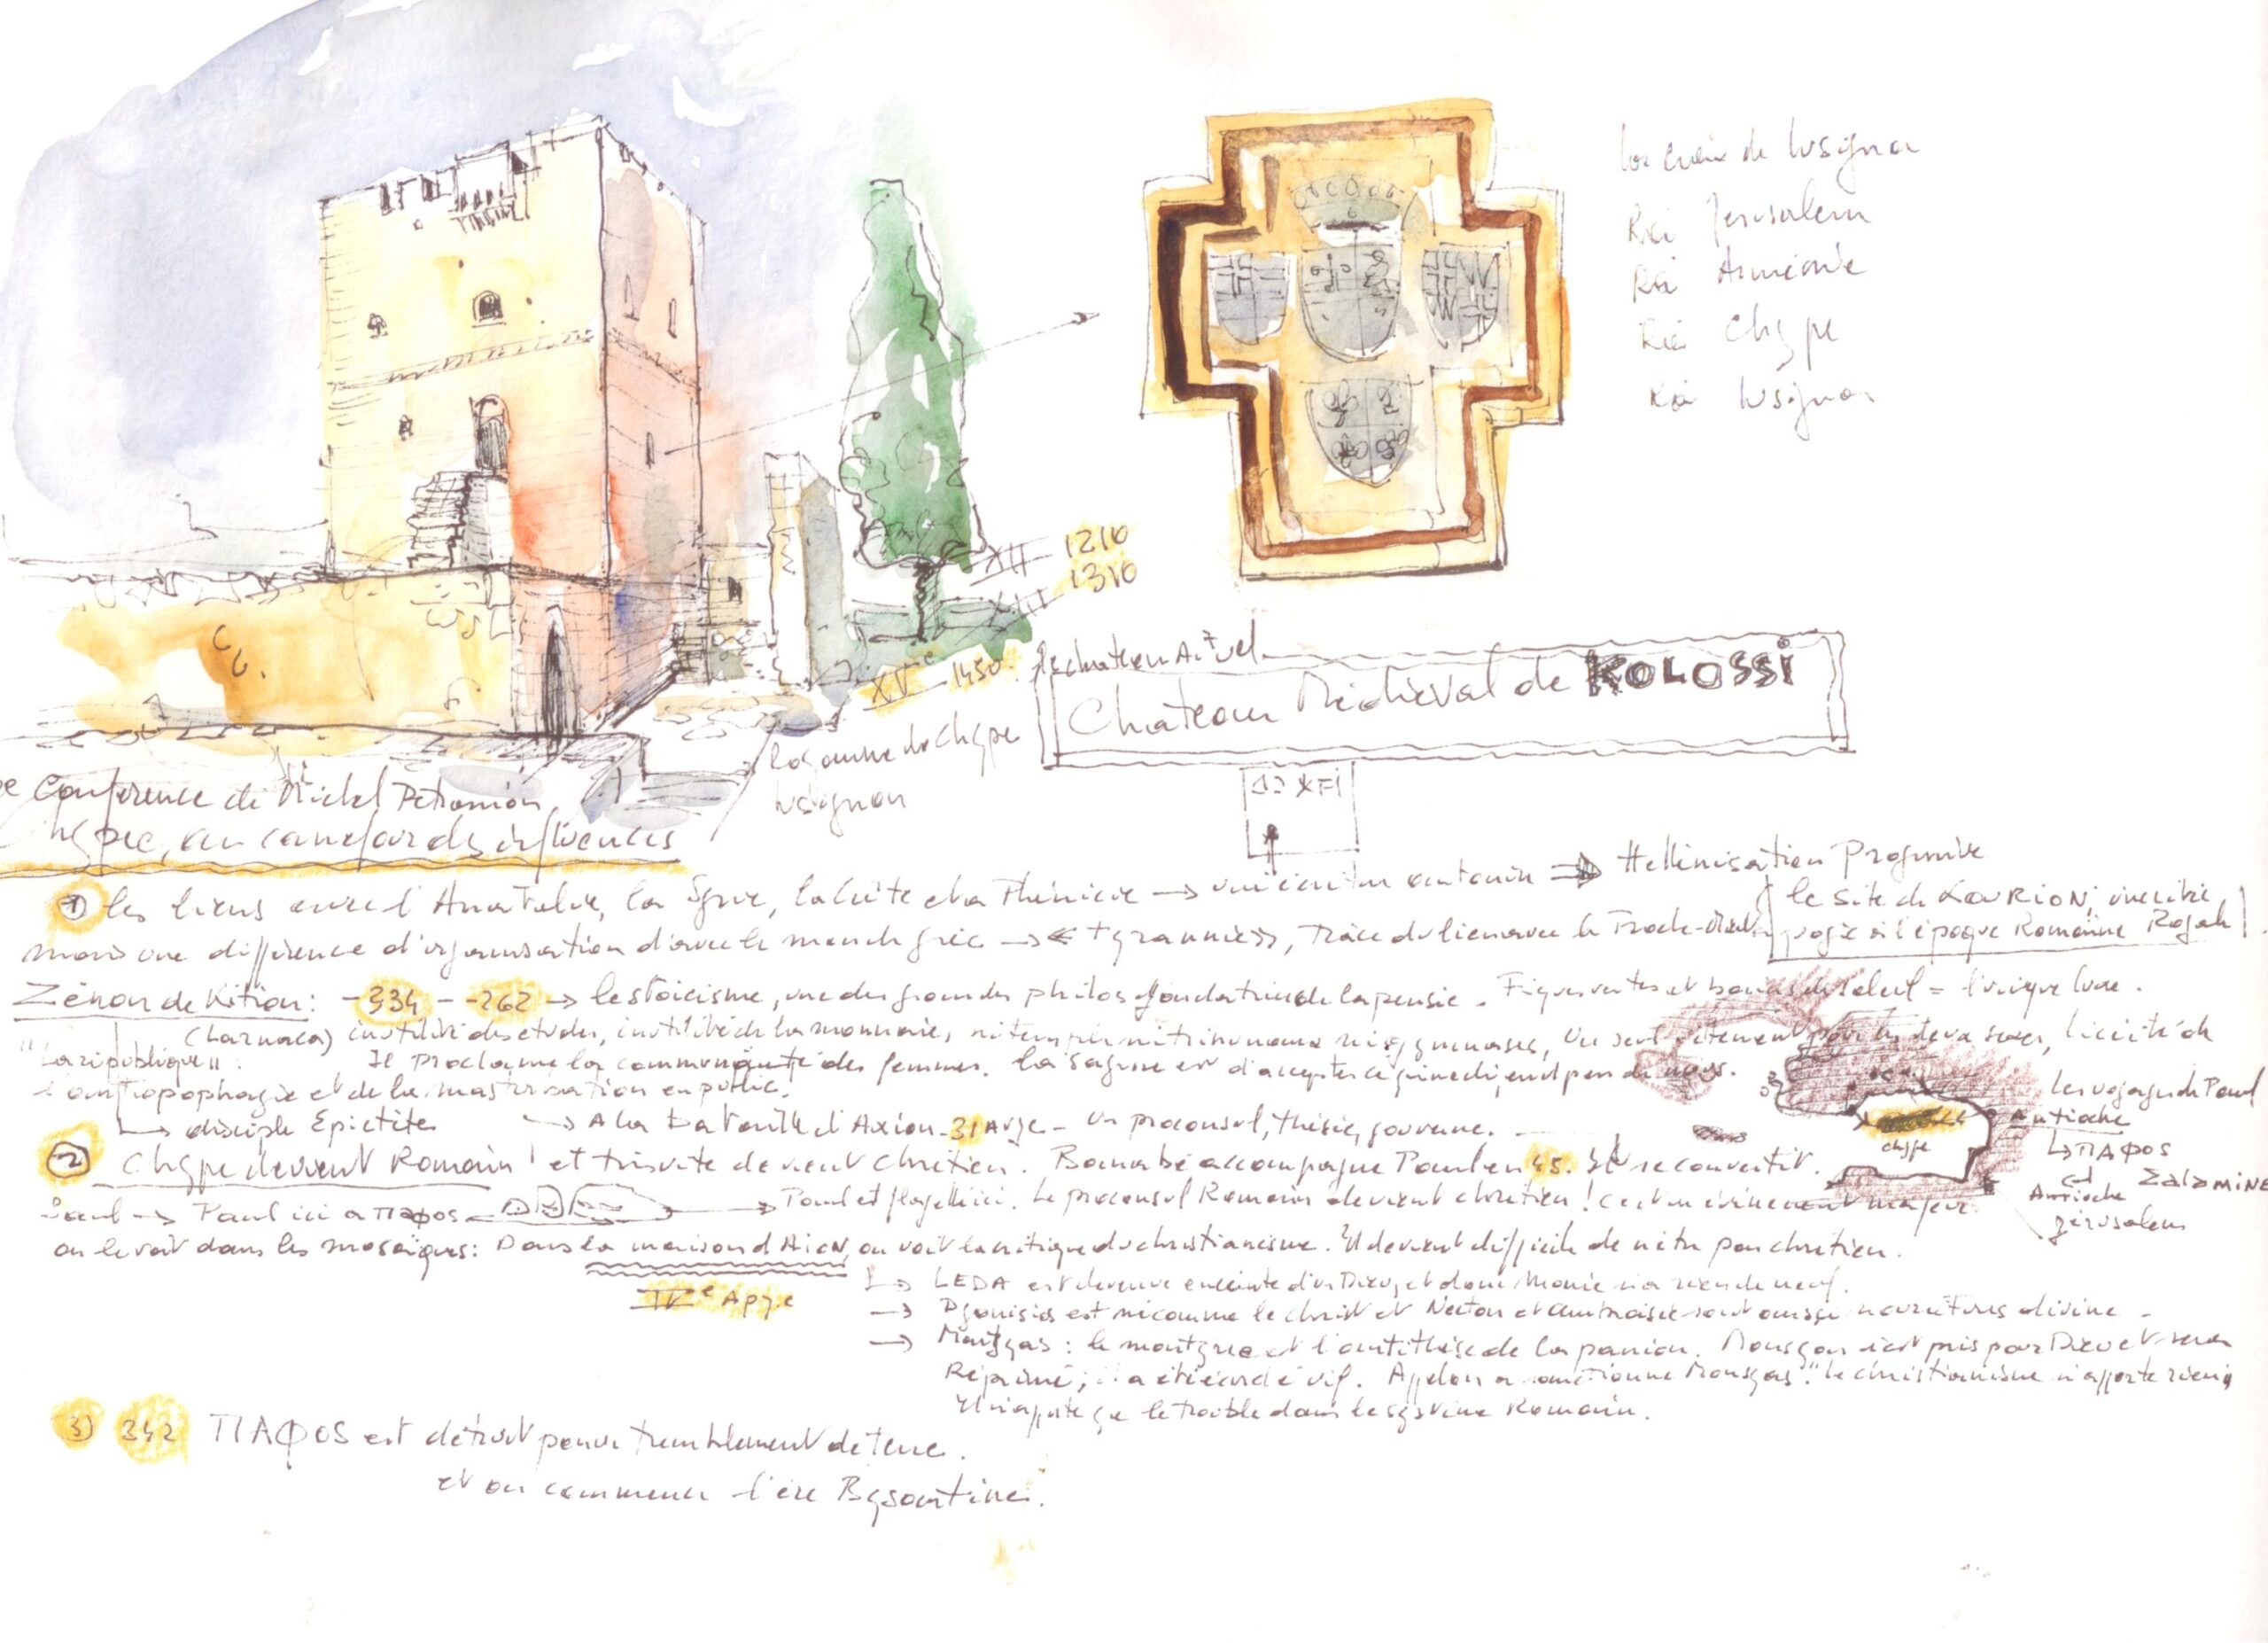 la croix de Lusignan
Roi Jerusalem
Roi Arménie
Roi Chypre
Roi Lusignan
XII 1210
XIII 1310
XVe 1450 le chateau Actuel
Chateau Médiéval de KOLOSSI
Royaume de Chypre
Lusignan
Conférence de Michel
Chypre, au carrefour des influences
1 les liens avec l'Anatolie, la Syrie, la Crète et la Phénicie → Hellénisation Progressive
mais une différence d'organisation d'avec le monde grec → « tyrannie », Trace du lien avec le Proche-Orient
le site de KOURION, une cité
à l'époque Romaine Royale
Zénon de Kition: -334 - -262 → le stoïcisme, une des grandes philos fondatrices de la pensée. Figues vertes et bains de soleil = l'unique luxe.
(Larnaca) inutilité des études, inutilité de la monnaie, ni temples ni tribunaux ni gymnases, un seul vêtement pour les deux sexes, licéité de
"La république": Il proclame la communauté des femmes. La sagesse est d'accepter ce qui ne dépend pas de nous.
l'antropophagie et de la masturbation en public.
→ disciple Epictète → A la Bataille d'Axion -31 AvJC - Un proconsul, gouverne.
2 Chypre devient Romain et ensuite devient Chrétien. Barnabé accompagne Paul en 45. Il se convertit.
Saul → Paul ici a ΠΑΦΟS → Paul est flagellé ici. Le proconsul Romain devient chrétien ! C'est un évènement majeur
on le voit dans les mosaïques: Dans la maison d'AiON, on voit la critique du christianisme. Il devient difficile de n'être pas chrétien.
IVe Ap J.C
→ LEDA est devenue enceinte d'un Dieu, et donc Marie n'a rien de neuf.
→ Dyonisios est né comme le Christ et Nectar et ambroisie sont aussi nourritures divine -
→ Marsyas : le martyre est l'antithèse de la passion. s'est pris pour Dieu et sera
Réprimé; il a été écorché vif. Appolon a sanctionné "le christianisme n'apporte rien,
Il n'apporte que le trouble dans le système Romain.
Les voyages de Paul
Antioche
↳ ΠΑΦΟS
et SALAMINE
Antioche
Jérusalem
chypre
3) 342 ΠΑΦΟS est détruit par un tremblement de terre.
et on commence l'ère Bysantine.